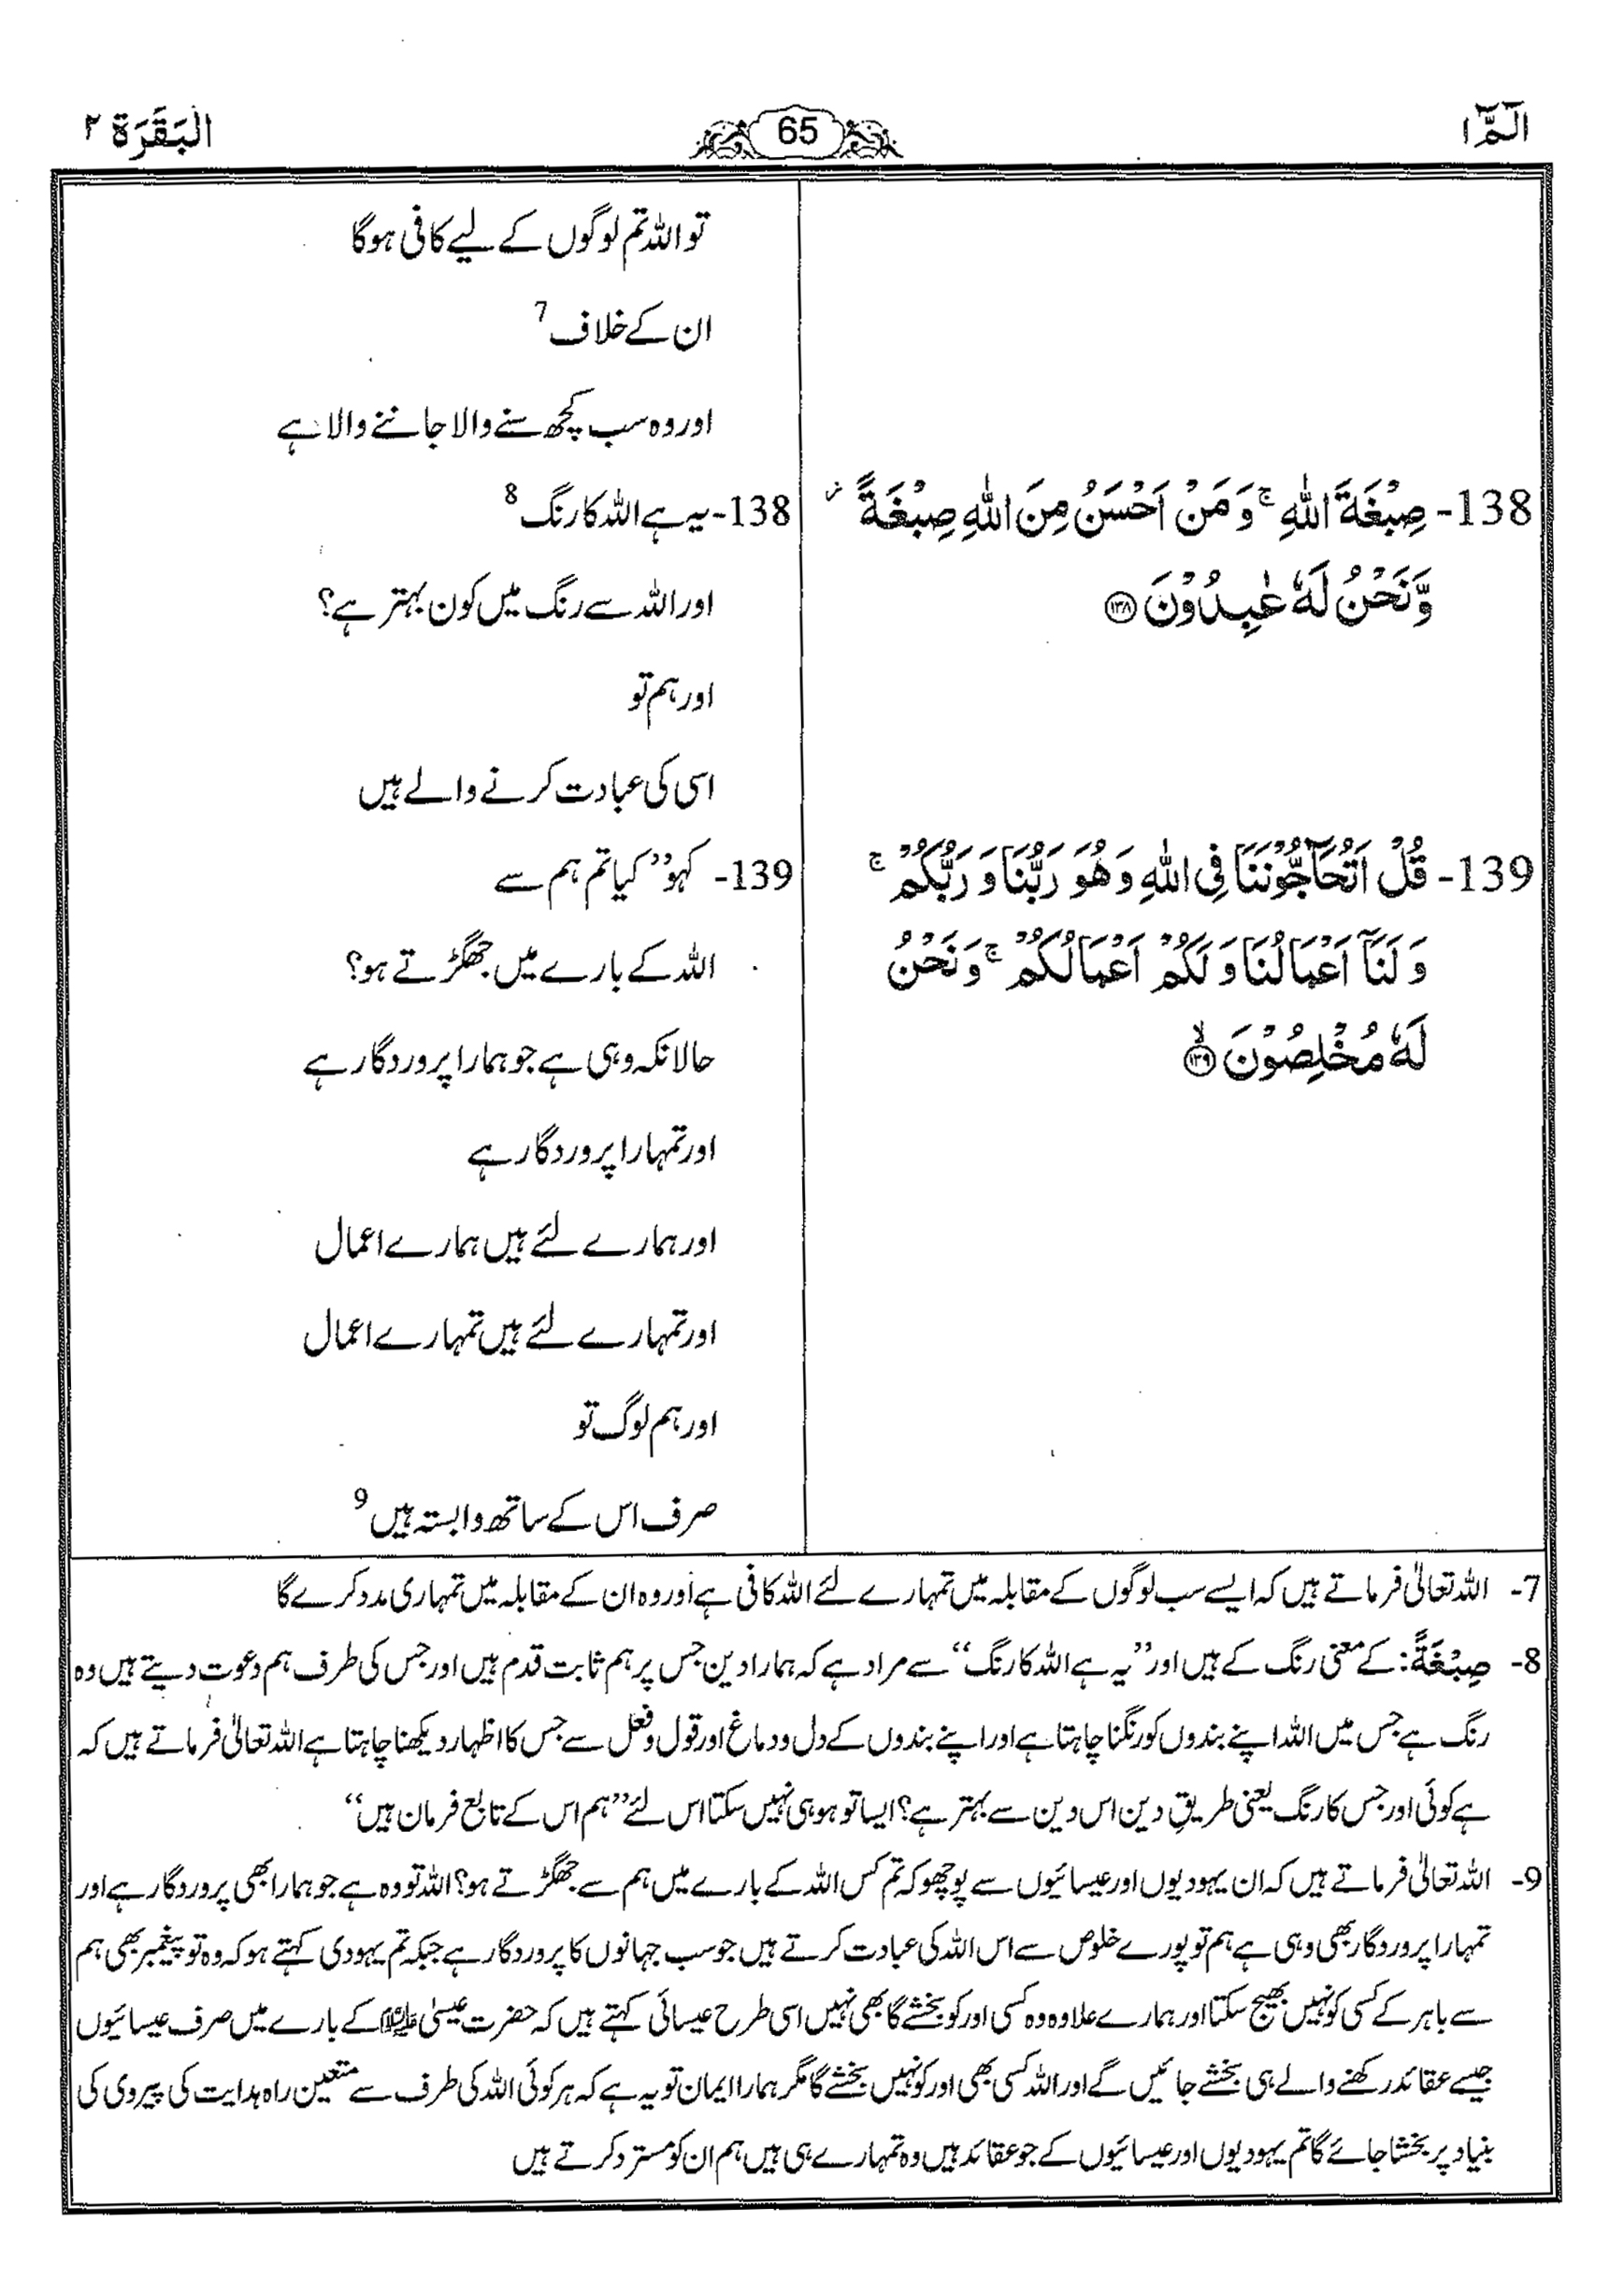 الٓمّٓ ١
65
البَقَرَة ٢
تو اللہ تم لوگوں کے لیے کافی ہوگا
ان کے خلاف 7
اور وہ سب کچھ سننے والا جاننے والا ہے
138- صِبْغَةَ اللّٰهِ ۚ وَ مَنْ اَحْسَنُ مِنَ اللّٰهِ صِبْغَةً ؗ
وَّ نَحْنُ لَهٗ عٰبِدُوْنَ ﴿١٣٨﴾
138- یہ ہے اللہ کا رنگ 8
اور اللہ سے رنگ میں کون بہتر ہے؟
اور ہم تو
اسی کی عبادت کرنے والے ہیں
139- قُلْ اَتُحَآجُّوْنَنَا فِی اللّٰهِ وَ هُوَ رَبُّنَا وَ رَبُّكُمْ ۚ
وَ لَنَاۤ اَعْمَالُنَا وَ لَكُمْ اَعْمَالُكُمْ ۚ وَ نَحْنُ
لَهٗ مُخْلِصُوْنَ ۙ﴿١٣٩﴾
139- کہو ’’کیا تم ہم سے
اللہ کے بارے میں جھگڑتے ہو؟
حالانکہ وہی ہے جو ہمارا پروردگار ہے
اور تمہارا پروردگار ہے
اور ہمارے لئے ہیں ہمارے اعمال
اور تمہارے لئے ہیں تمہارے اعمال
اور ہم لوگ تو
صرف اس کے ساتھ وابستہ ہیں 9
7- اللہ تعالیٰ فرماتے ہیں کہ ایسے سب لوگوں کے مقابلہ میں تمہارے لئے اللہ کافی ہے اور وہ ان کے مقابلہ میں تمہاری مدد کرے گا
8- صِبْغَةً: کے معنی رنگ کے ہیں اور ’’یہ ہے اللہ کا رنگ‘‘ سے مراد ہے کہ ہمارا دین جس پر ہم ثابت قدم ہیں اور جس کی طرف ہم دعوت دیتے ہیں وہ
رنگ ہے جس میں اللہ اپنے بندوں کو رنگنا چاہتا ہے اور اپنے بندوں کے دل و دماغ اور قول و فعل سے جس کا اظہار دیکھنا چاہتا ہے اللہ تعالیٰ فرماتے ہیں کہ
ہے کوئی اور جس کا رنگ یعنی طریقِ دین اس دین سے بہتر ہے؟ ایسا تو ہو ہی نہیں سکتا اس لئے ’’ہم اس کے تابع فرمان ہیں‘‘
9- اللہ تعالیٰ فرماتے ہیں کہ ان یہودیوں اور عیسائیوں سے پوچھو کہ تم کس اللہ کے بارے میں ہم سے جھگڑتے ہو؟ اللہ تو وہ ہے جو ہمارا بھی پروردگار ہے اور
تمہارا پروردگار بھی وہی ہے ہم تو پورے خلوص سے اس اللہ کی عبادت کرتے ہیں جو سب جہانوں کا پروردگار ہے جبکہ تم یہودی کہتے ہو کہ وہ تو پیغمبر بھی ہم
سے باہر کے کسی کو نہیں بھیج سکتا اور ہمارے علاوہ وہ کسی اور کو بخشے گا بھی نہیں اسی طرح عیسائی کہتے ہیں کہ حضرت عیسیٰ علیہ السلام کے بارے میں صرف عیسائیوں
جیسے عقائد رکھنے والے ہی بخشے جائیں گے اور اللہ کسی بھی اور کو نہیں بخشے گا مگر ہمارا ایمان تو یہ ہے کہ ہر کوئی اللہ کی طرف سے متعین راہ ہدایت کی پیروی کی
بنیاد پر بخشا جائے گا تم یہودیوں اور عیسائیوں کے جو عقائد ہیں وہ تمہارے ہی ہیں ہم ان کو مسترد کرتے ہیں